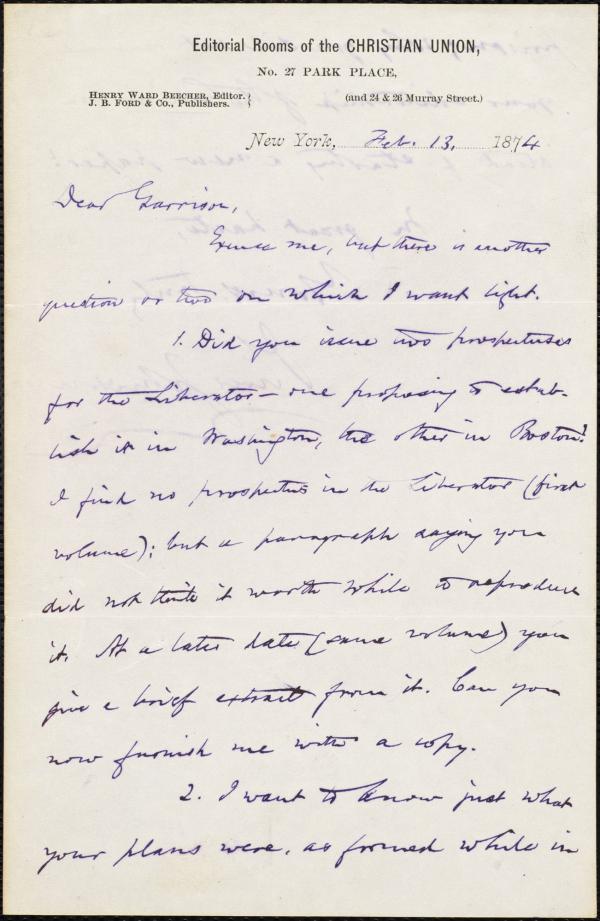 Editorial Rooms of the CHRISTIAN UNION,
No. 27 PARK PLACE,
HENRY WARD BEECHER, Editor.
J. B. FORD & CO., Publishers.
(and 24 & 26 Murray Street.)
New York, Feb. 13, 1874
Dear Garrison,
Excuse me, but there is another
question or two on which I want light.
1. Did you issue two prospectuses
for the Liberator — one proposing to estab-
lish it in Washington, the other in Boston?
I find no prospectus in the Liberator (first
volume); but a paragraph saying you
did not think it worth while to reproduce
it. At a later date (same volume) you
give a brief extract from it. Can you
now furnish me with a copy.
2. I want to know just what
your plans were, as formed while in